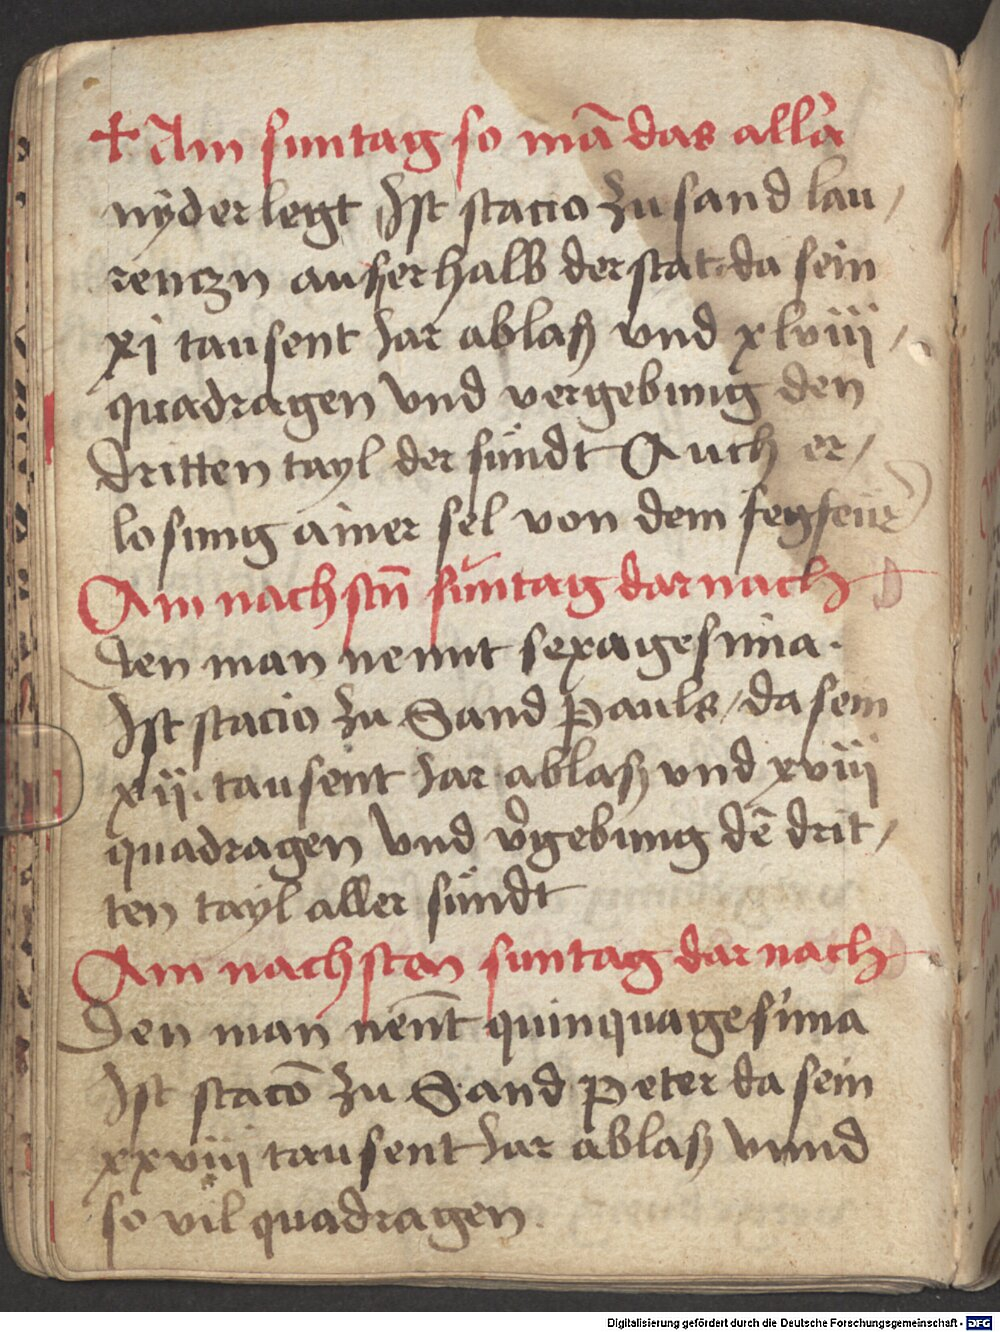 + Am suntag so mā das alla
nÿder legt Ist stacio zu sand lau /
renczn ausserhalb der stat · da sein
xj tausent Jar ablasz vnd xlviij /
quadragen vnd vergebung den
dritten tayl der sündt Auch er /
losung ainer sel von dem fegfeür
Am nachstn̄ suntag dar nach
den man nennt sexagesima ·
Ist stacio zu Sand Pauls / da sein
xij · tausent Jar ablasz vnd xviij
quadragen vnd v̾gebung dē drit /
ten tayl aller sündt
Am nachsten suntag dar nach
Den man nen̄t quinquagesima
Ist stacō zu Sand Peter da sein
xxviij tausent Jar ablasz vnnd
so vil quadragen ·
Digitalisierung gefördert durch die Deutsche Forschungsgemeinschaft - DFG